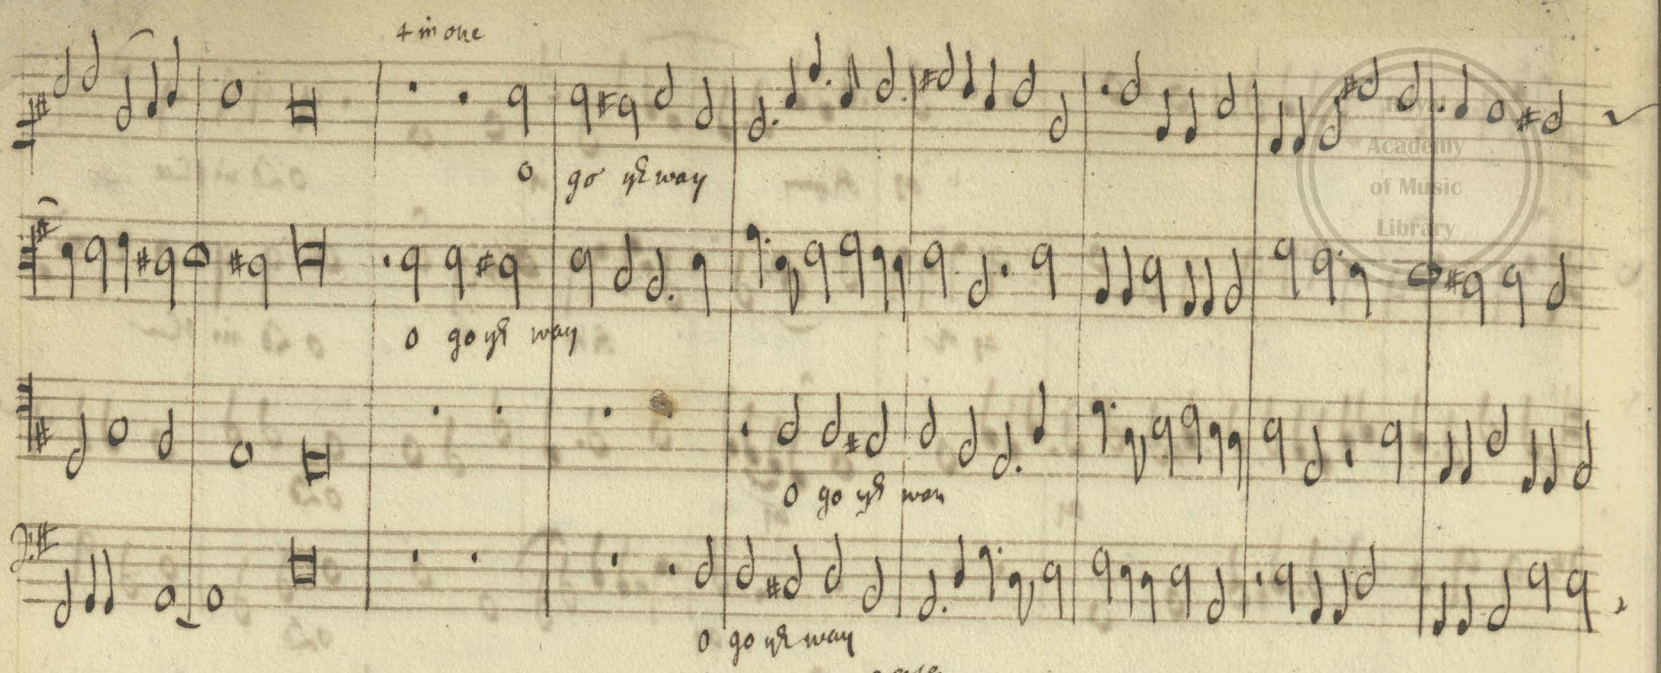 4 in one
o go yr way
o go yr way
o go yr way
o go yr way
Academy
of Music
Library